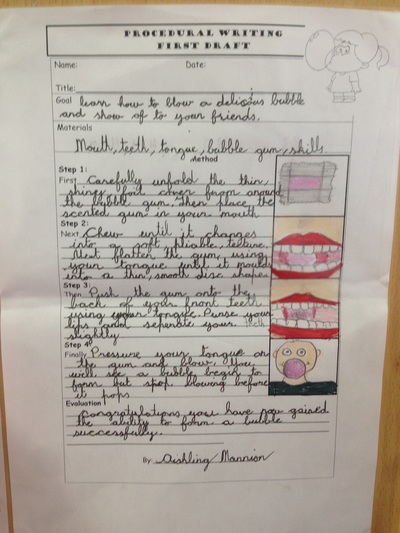 PROCEDURAL WRITING
FIRST DRAFT
Name: Date:
Title:
Goal learn how to blow a delicious bubble
and show of to your friends.
Materials
Mouth, teeth, tongue, bubble gum, skills
Method
Step 1:
First Carefully unfold the thin,
shiney foil cover from around
the bubble gum. Then place the
scented gum in your mouth
Step 2:
Next Chew until it changes
into a soft, pliable, texture.
Next flatten the gum, using
your tongue until it moulds
into a thin, smooth disc shape.
Step 3
Then Push the gum onto the
back of your front teeth
using your tongue. Purse your
lips and separate your teeth
slightly.
Step 4:
Finally Pressure your tongue on
the gum and blow. You
will see a bubble begin to
form but stop blowing before
it pops
Evaluation
Congratulations, you have now gained
the ability to form a bubble
successfully.
By: Aishling Mannion